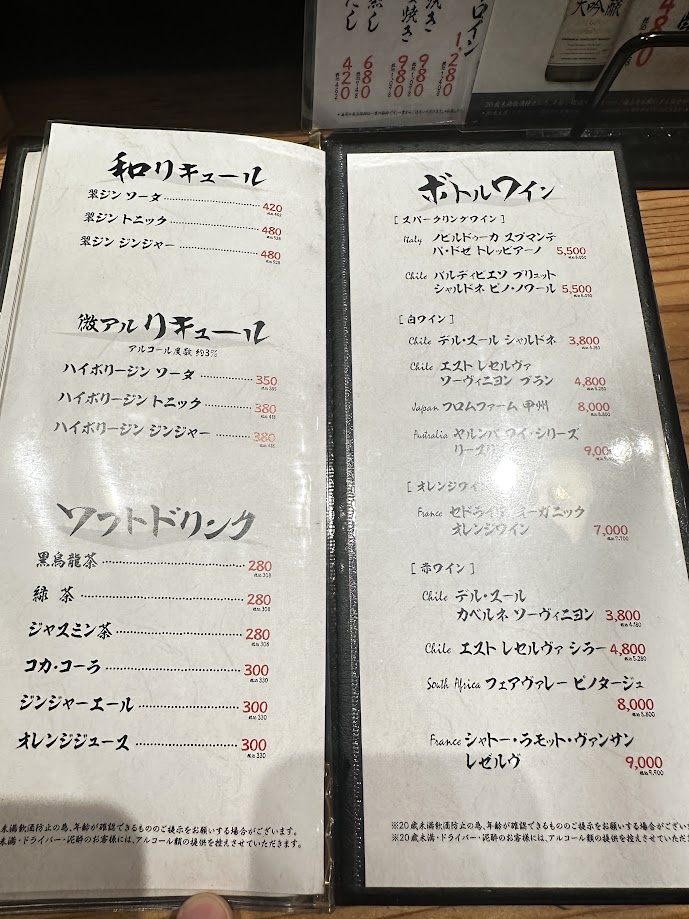 和リキュール
翠ジン ソーダ 420
税込462
翠ジン トニック 480
税込528
翠ジン ジンジャー 480
税込528
微アル リキュール
アルコール度数 約3%
ハイボリージン ソーダ 350
税込385
ハイボリージン トニック 380
税込418
ハイボリージン ジンジャー 380
税込418
ソフトドリンク
黒烏龍茶 280
税込308
緑 茶 280
税込308
ジャスミン茶 280
税込308
コカ・コーラ 300
税込330
ジンジャーエール 300
税込330
オレンジジュース 300
税込330
未満飲酒防止の為、年齢が確認できるもののご提示をお願いする場合がございます。
未満・ドライバー・泥酔のお客様には、アルコール類の提供を控えさせていただきます。
ボトルワイン
[ スパークリングワイン ]
Italy ノビルドゥーカ スプマンテ
バ・ドゼ トレッビアーノ 5,500
税込6,050
Chile バルディビエソ ブリュット
シャルドネ ピノ・ノワール 5,500
税込6,050
[ 白ワイン ]
Chile デル・スール シャルドネ 3,800
税込4,180
Chile エスト レセルヴァ
ソーヴィニヨン ブラン 4,800
税込5,280
Japan フロムファーム 甲州 8,000
税込8,800
Australia ヤルンバ ワイ・シリーズ
リースリ 9,00
[ オレンジワイン
France セドライ オーガニック
オレンジワイン 7,000
税込7,700
[ 赤ワイン ]
Chile デル・スール
カベルネ ソーヴィニヨン 3,800
税込4,180
Chile エスト レセルヴァ シラー 4,800
税込5,280
South Africa フェアヴァレー ピノタージュ
8,000
税込8,800
France シャトー・ラモット・ヴァンサン
レゼルヴ 9,000
税込9,900
※20歳未満飲酒防止の為、年齢が確認できるもののご提示をお願いする場合がござ
※20歳未満・ドライバー・泥酔のお客様には、アルコール類の提供を控えさせていただ
ロイン
1,280
焼き
980
980
蒸し
680
だし
420
大吟醸